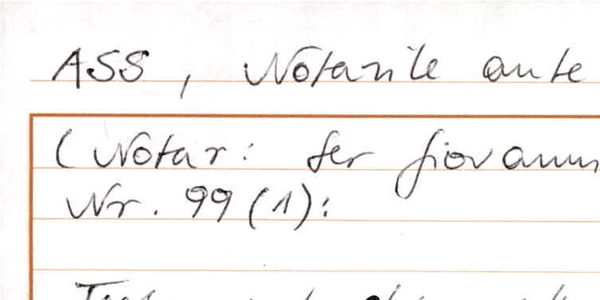 ASS, Notarile ante
(Notar: Ser Giovann
Nr. 99 (1):